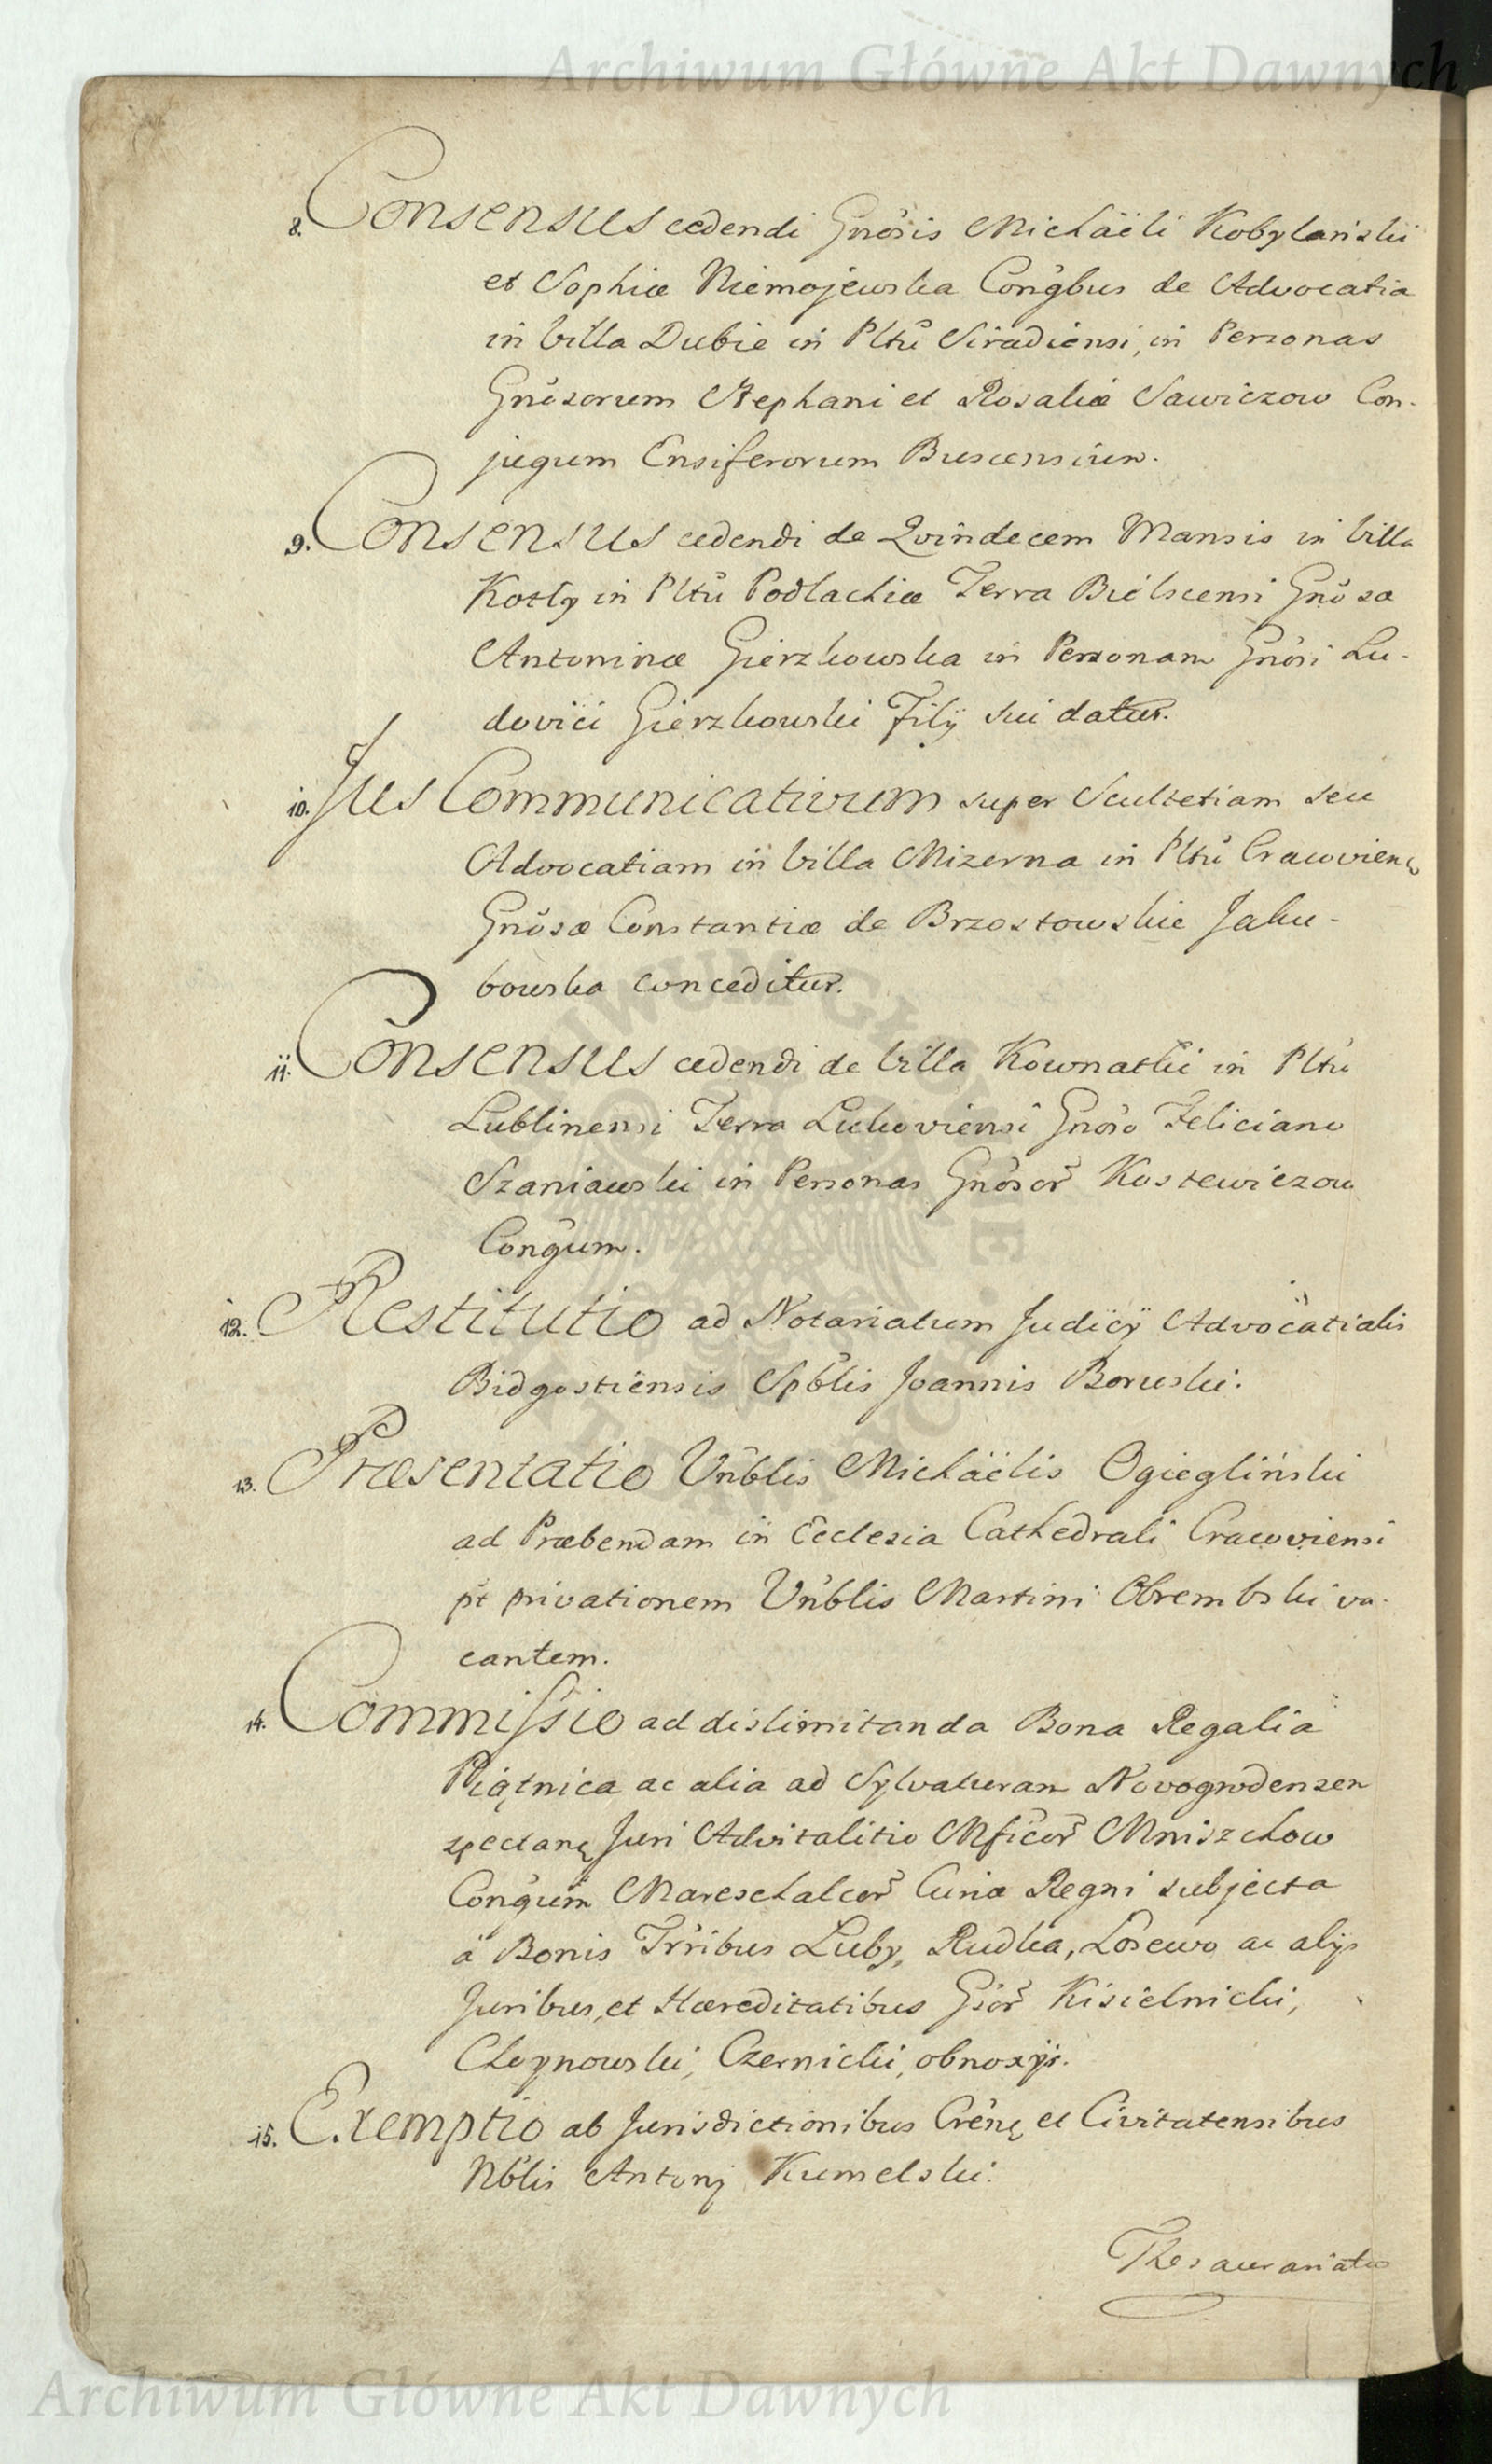 Archiwum Główne Akt Dawnych
8. Consensus cedendi Gnõsis Michaëli Kobylański
et Sophiæ Niemojewska Coñgbus de Advocatia
in Villa Dubie in Pltũ Siradiensi, in Personas
Gnõsorum Stephani et Rosaliæ Sawiczow Con-
jugum Ensiferorum Buscensium.
9. Consensus cedendi de Quindecem Mansis in Villa
Kotly in Pltũ Podlachiæ Terra Bielscensi Gnõsa
Antoninæ Gierzkowska in Personam Gnõsi Lu-
dovici Gierzkowski Filij sui datur.
10. Jus Communicativum super Scultetiam seu
Advocatiam in Villa Mizerna in Pltũ Cracovien
Gnõsæ Constantiæ de Brzostowskie Jaku-
bowska conceditur.
11. Consensus cedendi de Villa Kownatki in Pltũ
Lublinensi Terra Lukoviensi Gnõso Feliciano
Szaniawski in Personas Gnõsor̃ Kostewiczow
Coñgum.
12. Restitutio ad Notariatum Judicij Advocatialis
Bidgostiensis Spb̃lis Joannis Boruski.
13. Præsentatio Vñblis Michaëlis Ogiegliński
ad Præbendam in Ecclesia Cathedrali Cracoviensi
p̃t privationem Vñblis Martini Obrembski va-
cantem.
14. Commissio ad dislimitanda Bona Regalia
Piątnica ac alia ad Sylvaturam Novogrodensem
spectanę Juri Advitalitio Mficor̃ Mniszchow
Coñgum Mareschalcor̃ Curiæ Regni subjecta
á Bonis Trr̃ibus Luby, Rudka, Łosewo ac alijs
Juribus, et Hæreditatibus Gsor̃ Kisielnicki,
Choynowski, Czernicki, obnoxijs.
15. Exemptio ab Jurisdictionibus Crẽnę et Civitatensibus
Nb̃lis Antonj Kumelski.
Thesaurariatus
Archiwum Główne Akt Dawnych